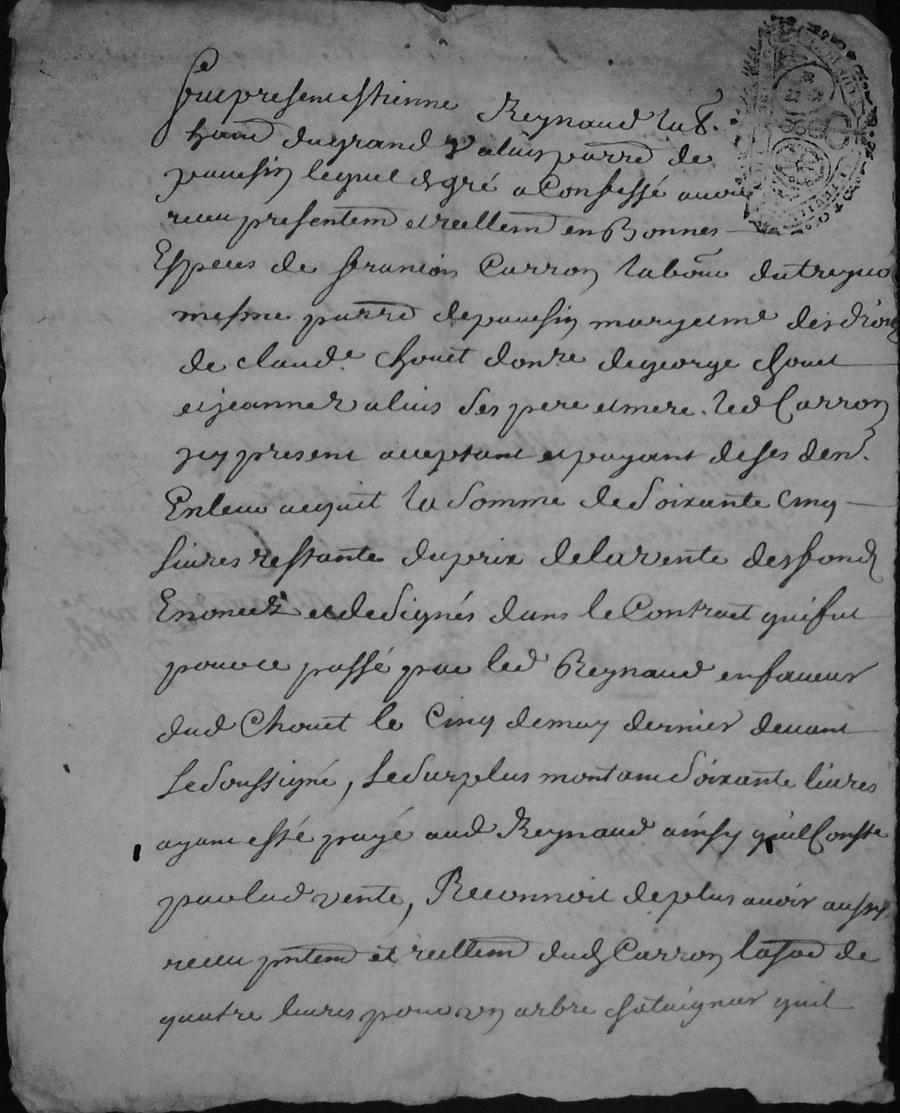 fut present estienne Reynaud lab.
hant du grand Valuis parre de
pouusin lequel de gré a Confessé avoir
receu presentem et reellem en Bonnes
Especes de francois Carron labour du treyuo
mesme parre de pouusin
de claude Chouet donre de george chouet
et jeanne Valuis ses pere et mere. led Carron
jcy present aceptant et payant de ses den.
En leur acquit la Somme de Soixante Cinq
livres restante du prix de la vente des fonds
Enoncés et desígnés dans le Contract qui fut
pour ce passé par led Reynaud en faveur
dud Chouet le Cinq de may dernier devant
Le Soussigné, Le Surplus montant Soixante livres
ayant esté payé aud Reynaud ainsy quil Conste
par lad vente, Reconnoit de plus avoir aussy
receu pntem et reellem dud Carron la so.e de
quatre livres pour un arbre chataignier quil